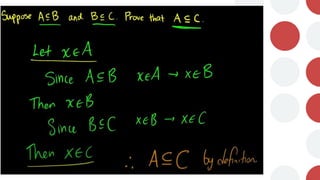 Suppose A⊆B and B⊆C. Prove that A⊆C.
Let x∈A
Since A⊆B x∈A → x∈B
Then x∈B
Since B⊆C x∈B → x∈C
Then x∈C ∴ A⊆C by definition